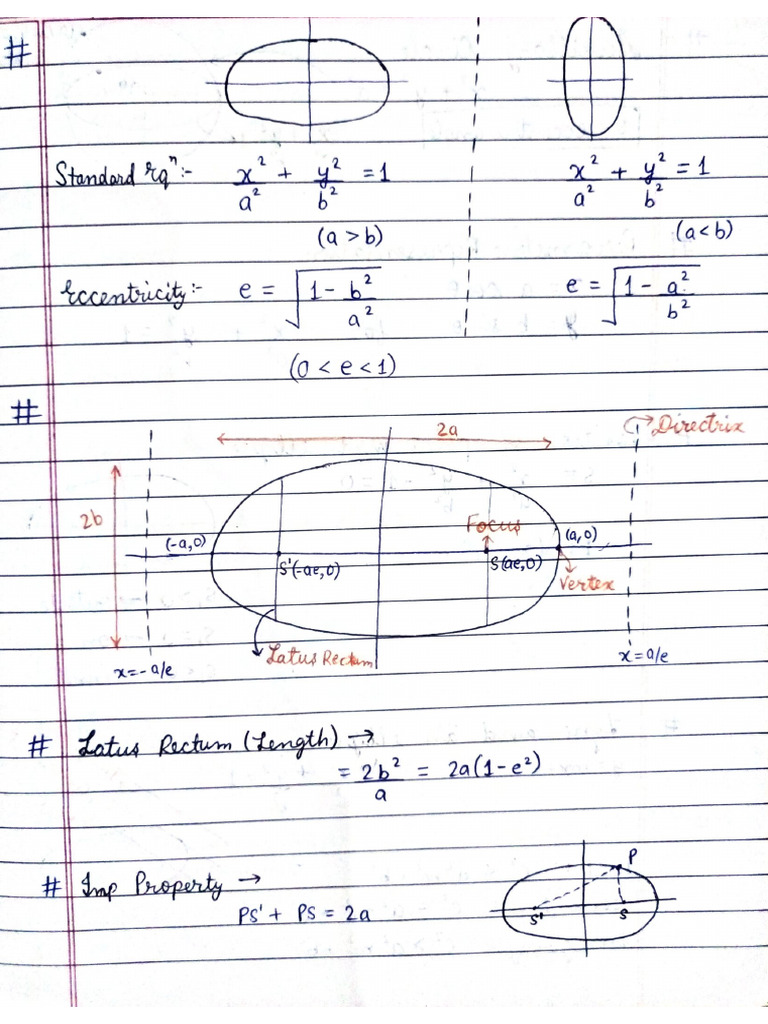 #
Standard Eqⁿ:- x²/a² + y²/b² = 1 x²/a² + y²/b² = 1
(a > b) (a < b)
Eccentricity:- e = √(1 - b²/a²) e = √(1 - a²/b²)
(0 < e < 1)
#
2a Directrix
2b
Focus
(-a,0) (a,0)
S'(-ae,0) S(ae,0)
Vertex
Latus Rectum
x=-a/e x=a/e
# Latus Rectum (Length) →
= 2b²/a = 2a(1-e²)
# Imp Property →
P
PS' + PS = 2a
S' S